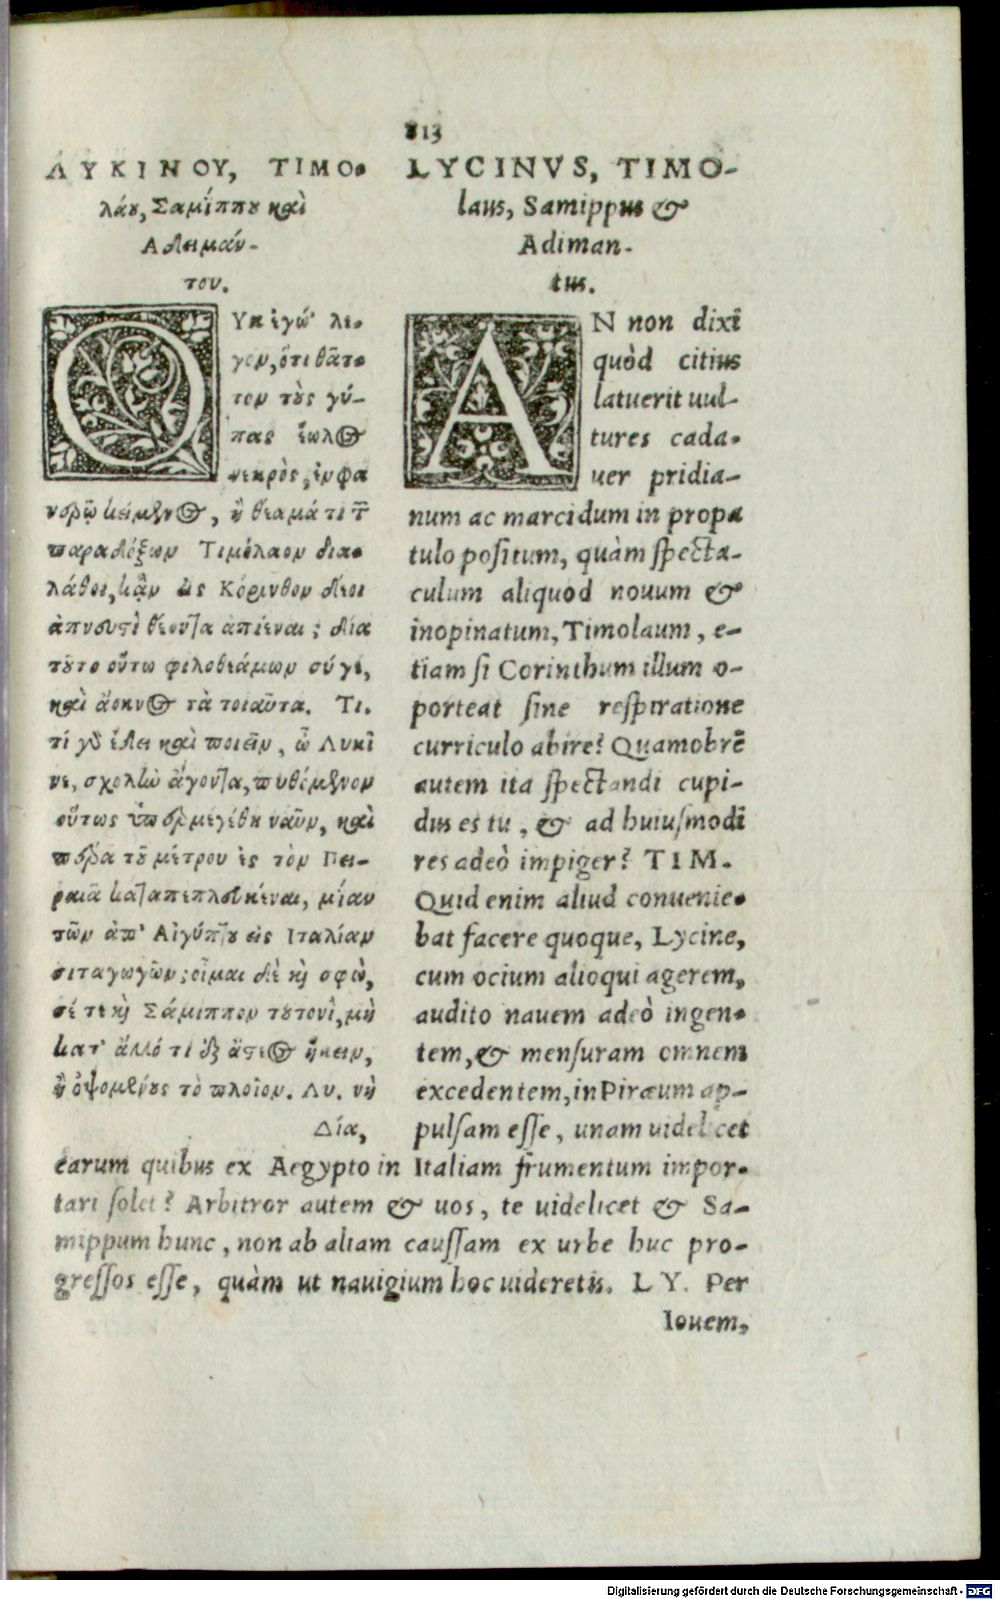 213
ΛΥΚΙΝΟΥ, ΤΙΜΟ-
λάου, Σαμίππου καὶ
Αδειμάν-
του.
ΟΥκ ἐγώ λε-
γον, ὅτι θᾶτ-
τον τοὺς γύ-
πας ἕωλος
νεκρὸς, ἐν φα
νερῷ κείμενος, ἢ θέαμά τι τ̄
παραδόξων Τιμόλαον δια-
λάθοι, κἂν εἰς Κόρινθον δέοι
ἀπνευστὶ θέοντα ἀπιέναι; δία
τοῦτο οὕτω φιλοθεάμων σύ γε,
καὶ ἄοκνος τὰ τοιαῦτα. Τι.
τί γὰρ ἔδει καὶ ποιεῖν, ὦ Λυκῖ
νε, σχολὴν ἄγοντα, πυθόμενον
οὕτως ὑπερμεγέθη ναῦν, καὶ
πέρα τοῦ μέτρου ἐς τὸν Πει-
ραιᾶ καταπεπλευκέναι, μίαν
τῶν ἀπ' Αἰγύπτου εἰς Ιταλίαν
σιταγωγῶν; οἶμαι δὲ καὶ σφὼ,
σέ τε καὶ Σάμιππον τουτονὶ, μὴ
κατ' ἄλλό τι ἐξ ἄστεος ἥκειν,
ἢ ὀψομένους τὸ πλοῖον. Λυ. νὴ
Δία,
LYCINVS, TIMO-
laus, Samippus &
Adiman-
tus.
AN non dixi
quòd citius
latuerit uul-
tures cada-
uer pridia-
num ac marcidum in propa
tulo positum, quàm specta-
culum aliquod nouum &
inopinatum, Timolaum, e-
tiam si Corinthum illum o-
porteat sine respiratione
curriculo abire? Quamobrē
autem ita spectandi cupi-
dus es tu, & ad huiusmodi
res adeò impiger? TIM.
Quid enim aliud conuenie-
bat facere quoque, Lycine,
cum ocium alioqui agerem,
audito nauem adeò ingen-
tem, & mensuram omnem
excedentem, in Piræum ap-
pulsam esse, unam uidelicet
earum quibus ex Aegypto in Italiam frumentum impor-
tari solet? Arbitror autem & uos, te uidelicet & Sa-
mippum hunc, non ab aliam caussam ex urbe huc pro-
gressos esse, quàm ut nauigium hoc uideretis. LY. Per
Iouem,
Digitalisierung gefördert durch die Deutsche Forschungsgemeinschaft - DFG